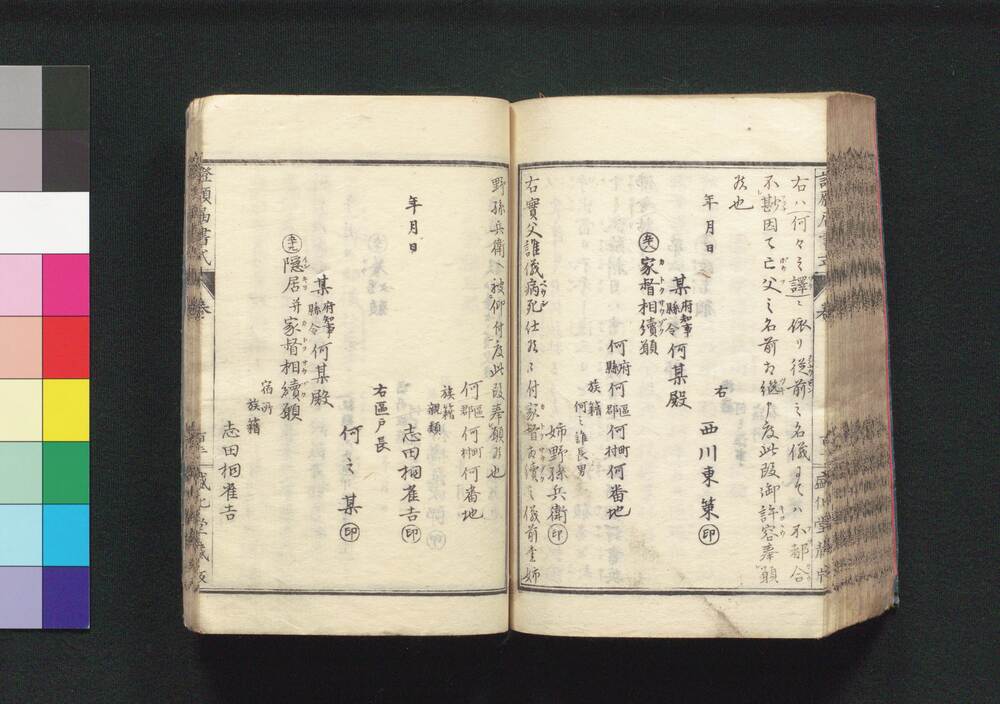 右ハ何々之譯ニ依リ從前之名儀ニテハ不都合
不尠因テ亡父之名前相継申度此段御許容奉願
候也
年月日
右
西川東策㊞
某府知事縣令何某殿
家督相續願
カトクサウゾク
何府縣何區郡何町村何番地
族籍
何之誰長男
姉野孫兵衛㊞
右實父誰儀病死仕候ニ付家督相續之儀前書姉
野孫兵衛ヘ被仰付度此段奉願候也
何區郡何町村何番地
族籍
親類
志田桐雀吉㊞
年月日
右區戸長
何之某㊞
某府知事縣令何某殿
隠居并家督相續願
宿所
族籍
志田桐雀吉
證願届書式
巻